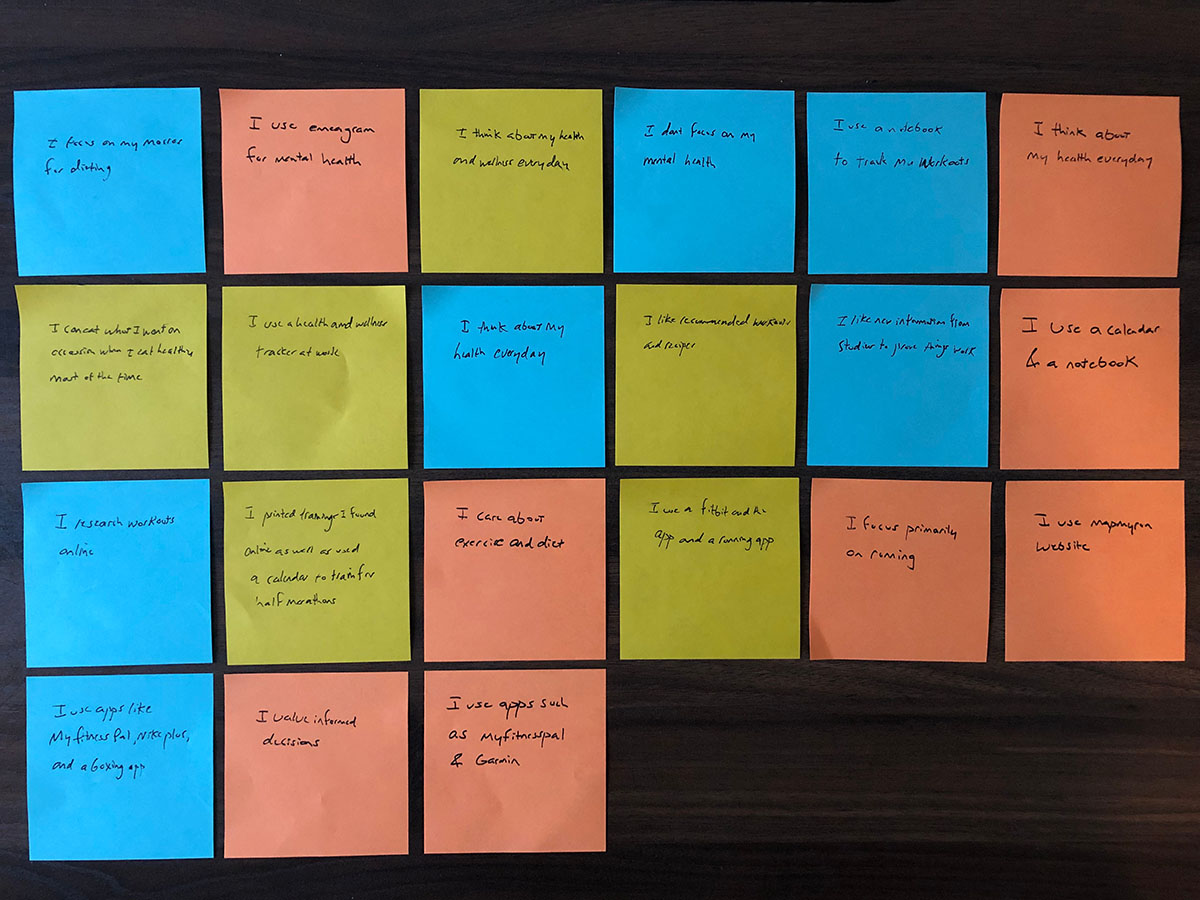 I focus on my macros
for dieting
I use enneagram
for mental health
I think about my health
and wellness everyday
I dont focus on my
mental health
I use a notebook
to track my workouts
I think about
my health everyday
I can eat what I want on
occassion when I eat healthy
most of the time
I use a health and wellness
tracker at work
I think about my
health everyday
I like recommended workouts
and recipes
I like new information from
studies to prove things work
I use a calendar
& a notebook
I research workouts
online
I printed trainings I found
online as well as used
a calendar to train for
half marathons
I care about
exercise and diet
I use a fitbit and the
app and a running app
I focus primarily
on running
I use mapmyrun
website
I use apps like
Myfitness Pal, Nike plus,
and a boxing app
I value informed
decisions
I use apps such
as Myfitnesspal
& Garmin